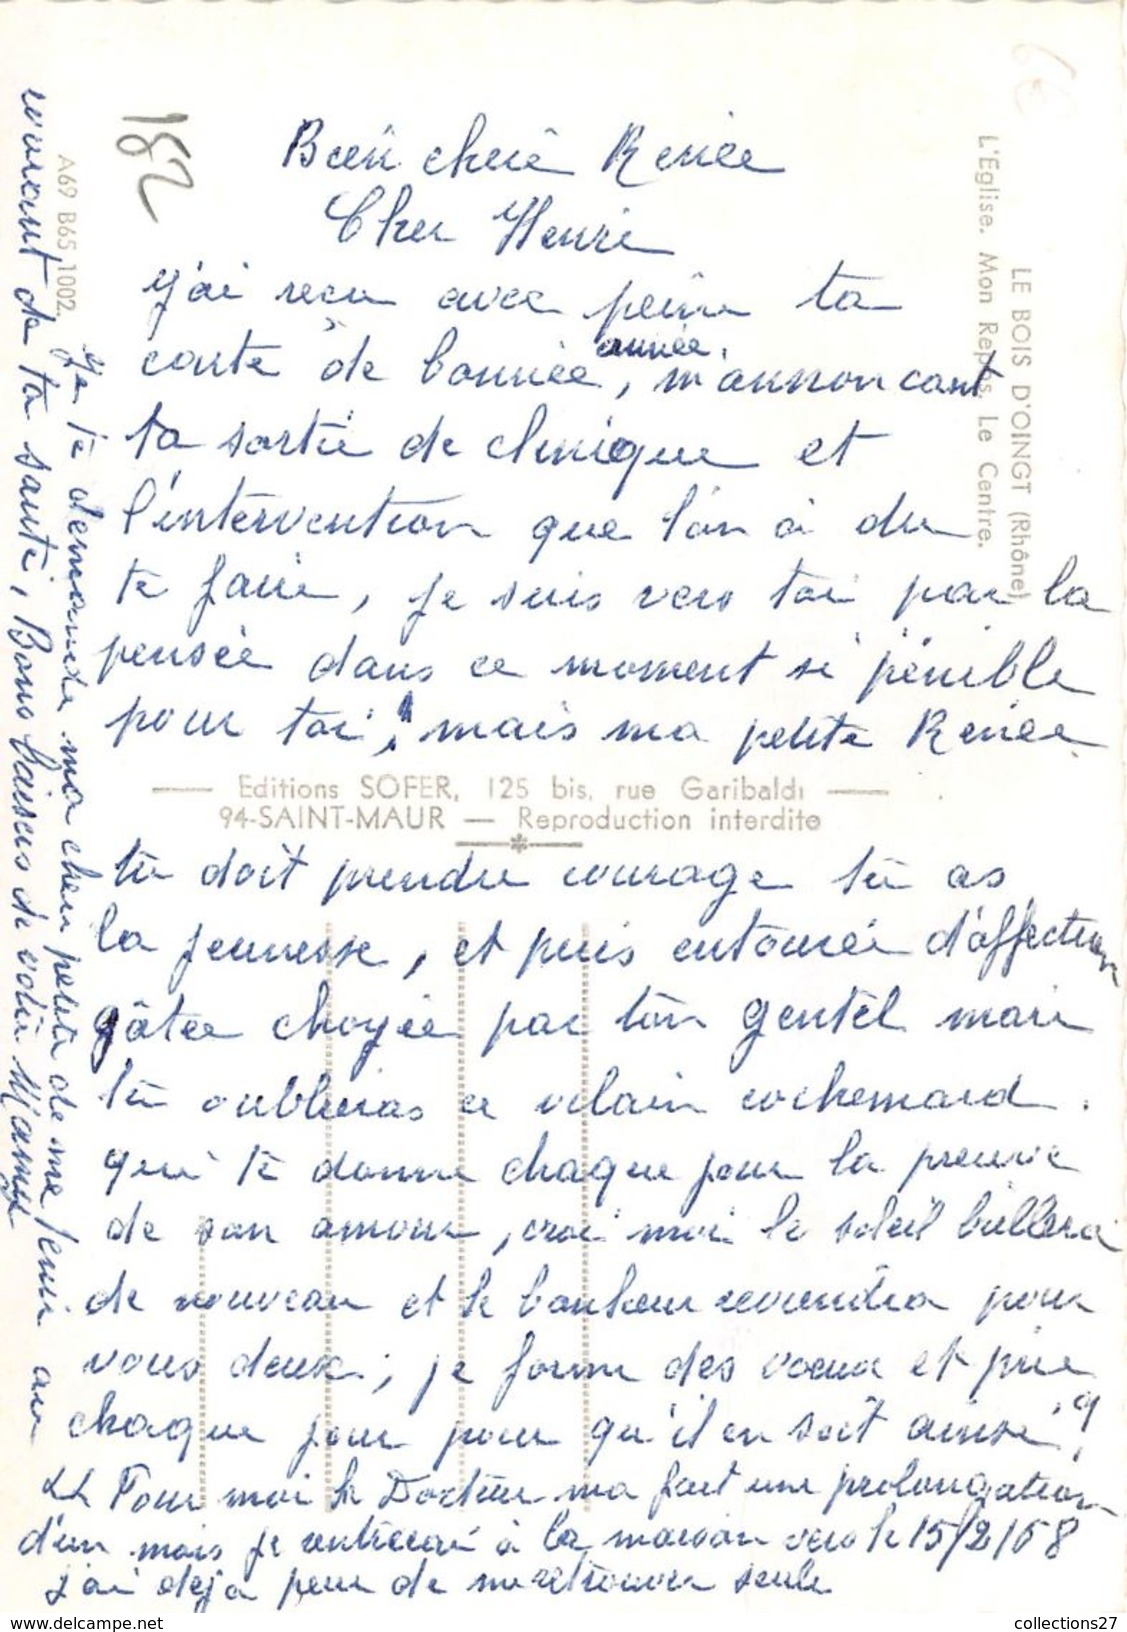 Bien chère Renée
Cher Henri
J'ai reçu avec peine ta
carte de bonnée année, m'annoncant
ta sortie de clinique et
l'intervention que l'on à du
te faire, je suis vers toi par la
pensée dans ce moment si pénible
pour toi, mais ma petite Renée
tu doit prendre courage tu as
la jeunesse, et puis entourée d'affection
gâtée choyée par ton gentil mari
tu oublieras ce vilain cochemard.
qui te donne chaque jour la preuve
de son amour, croi moi le soleil brillera
de nouveau et le bonheur reviendra pour
vous deux; je forme des voeux et prie
chaque jour pour qu'il en soit ainsi
Pour moi le Docteur ma fait une prolongation
d'un mois je rentrerai à la maison vers le 15/2/68
J'ai deja peur de me retrouver seule
Je te demande ma chere petite de me tenir au
courant de ta santé, Bons baisers de votre Mamy
182
A69 B65 1002.
LE BOIS D'OINGT (Rhône)
L'Eglise. Mon Repos. Le Centre.
Editions SOFER, 125 bis, rue Garibaldi
94-SAINT-MAUR — Reproduction interdite
6€
collections27